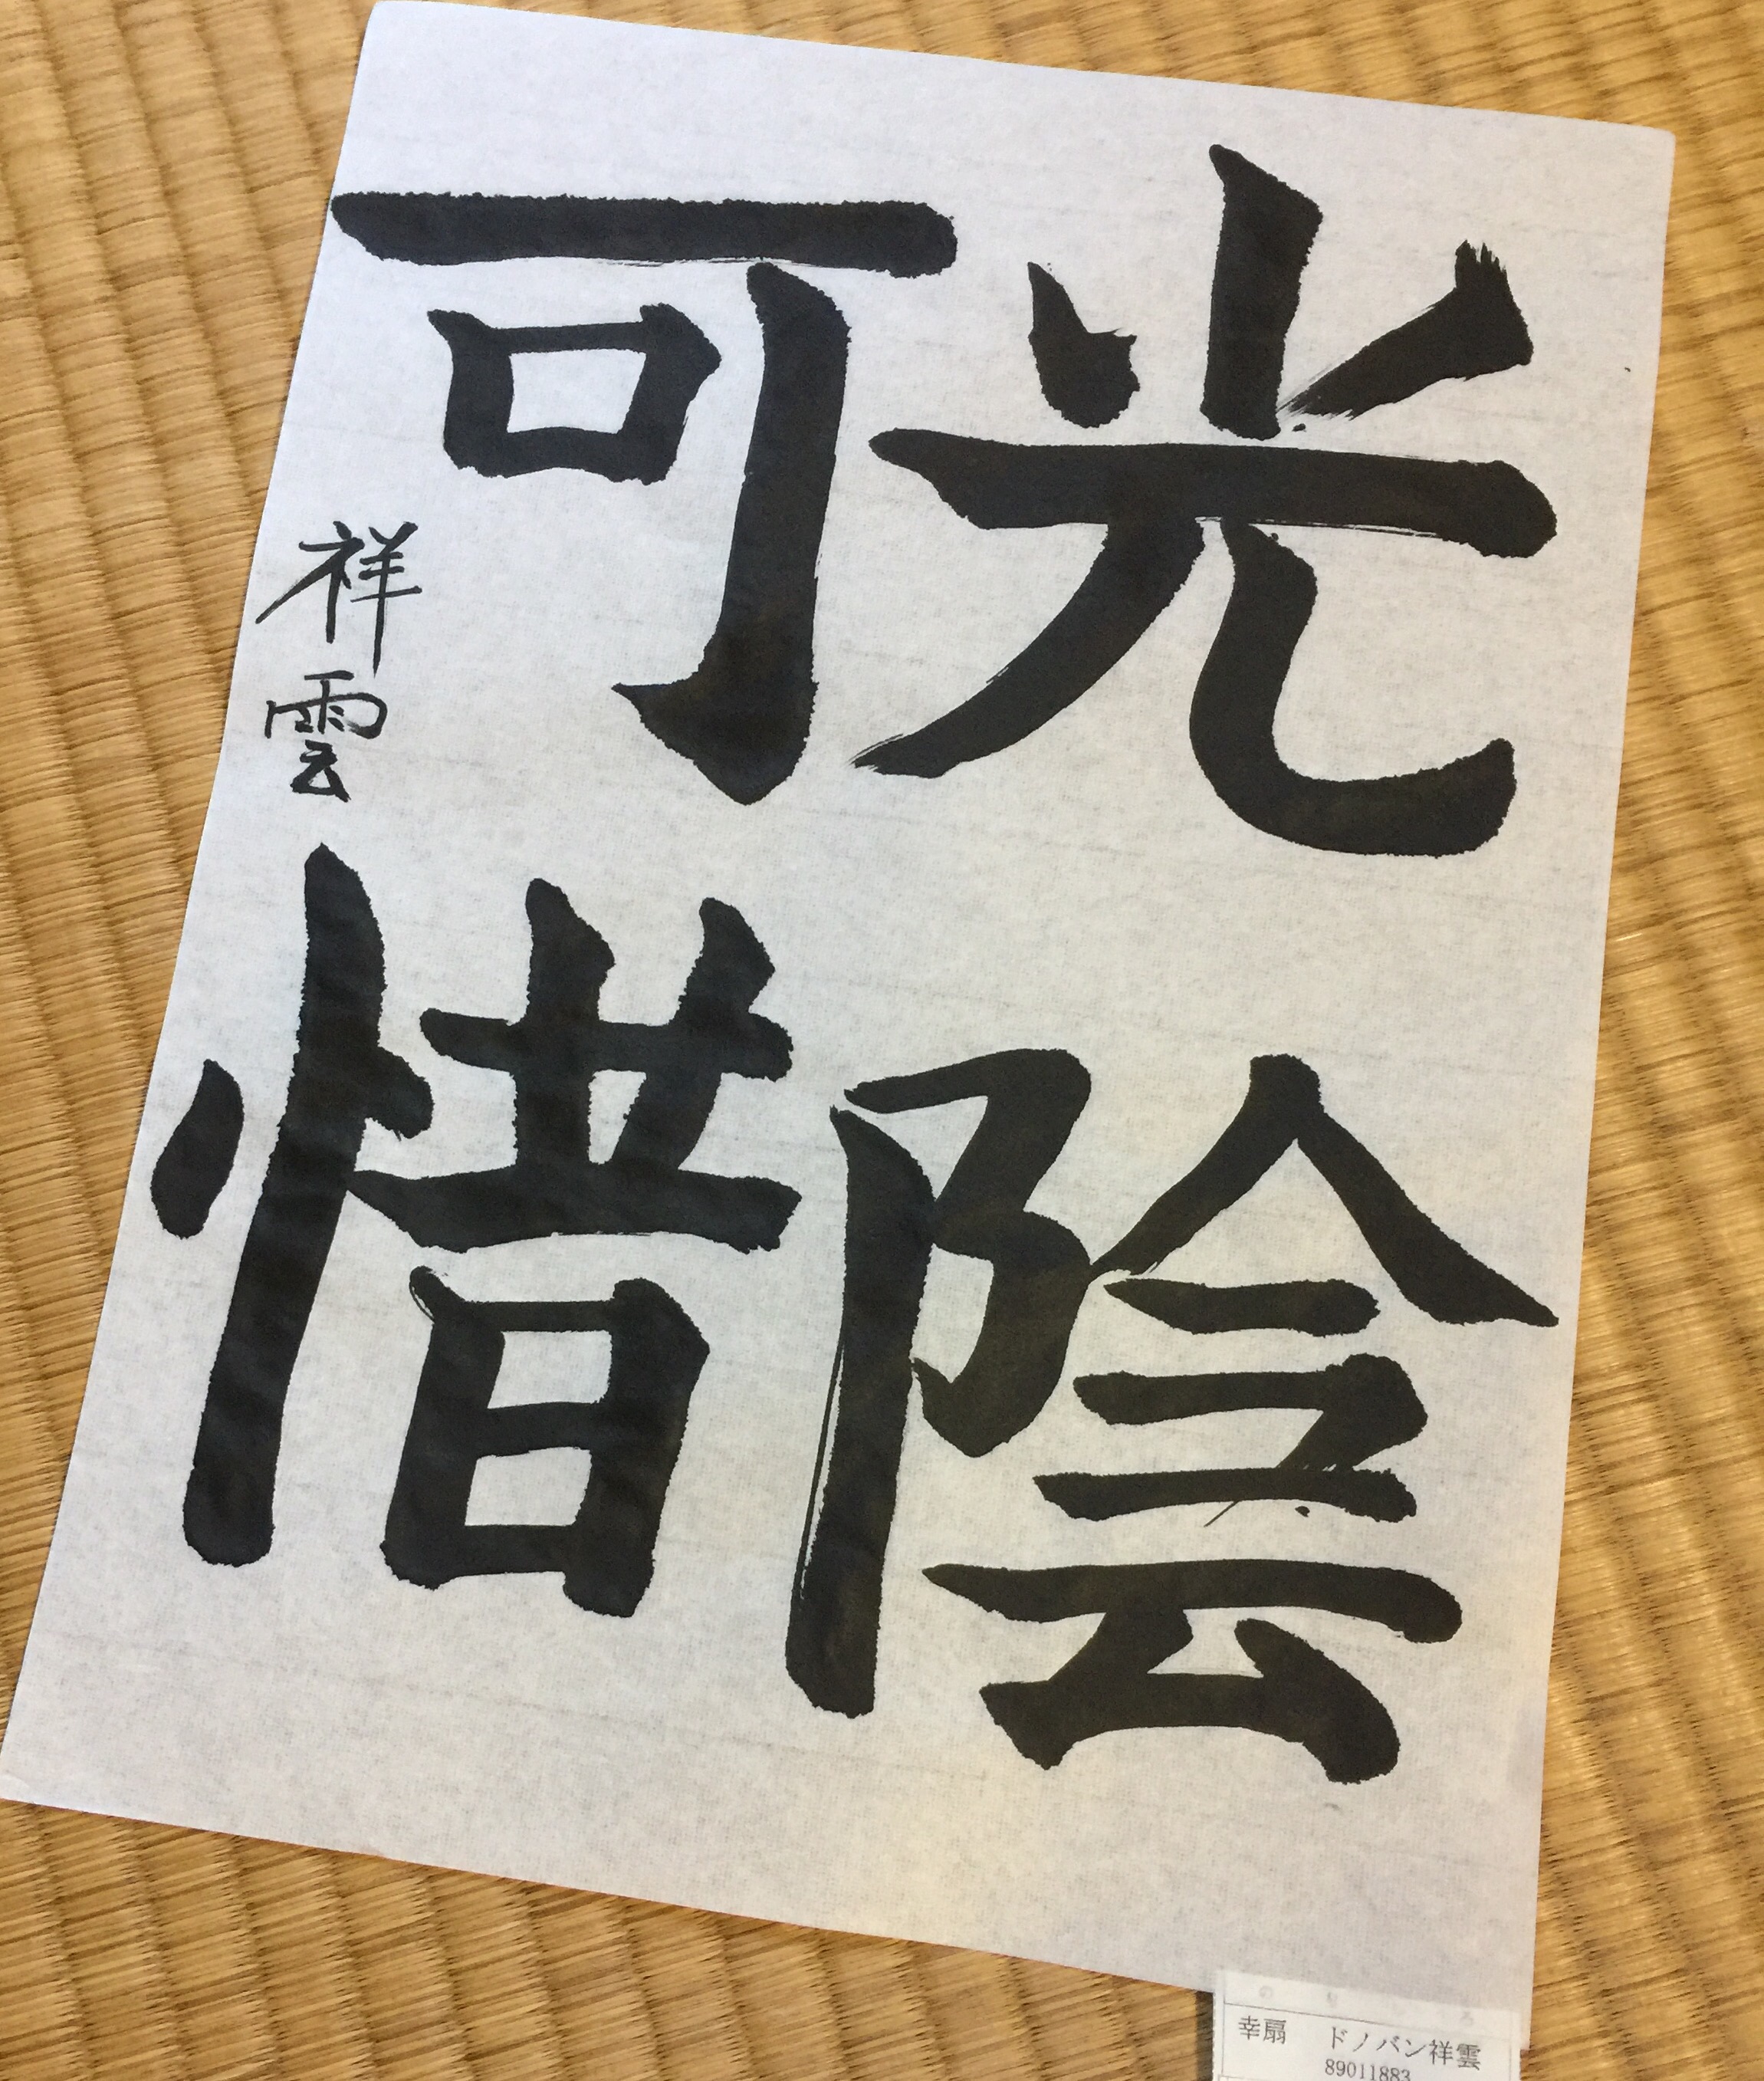 光陰
可惜
祥雲
幸扇 ドノバン祥雲
89011883